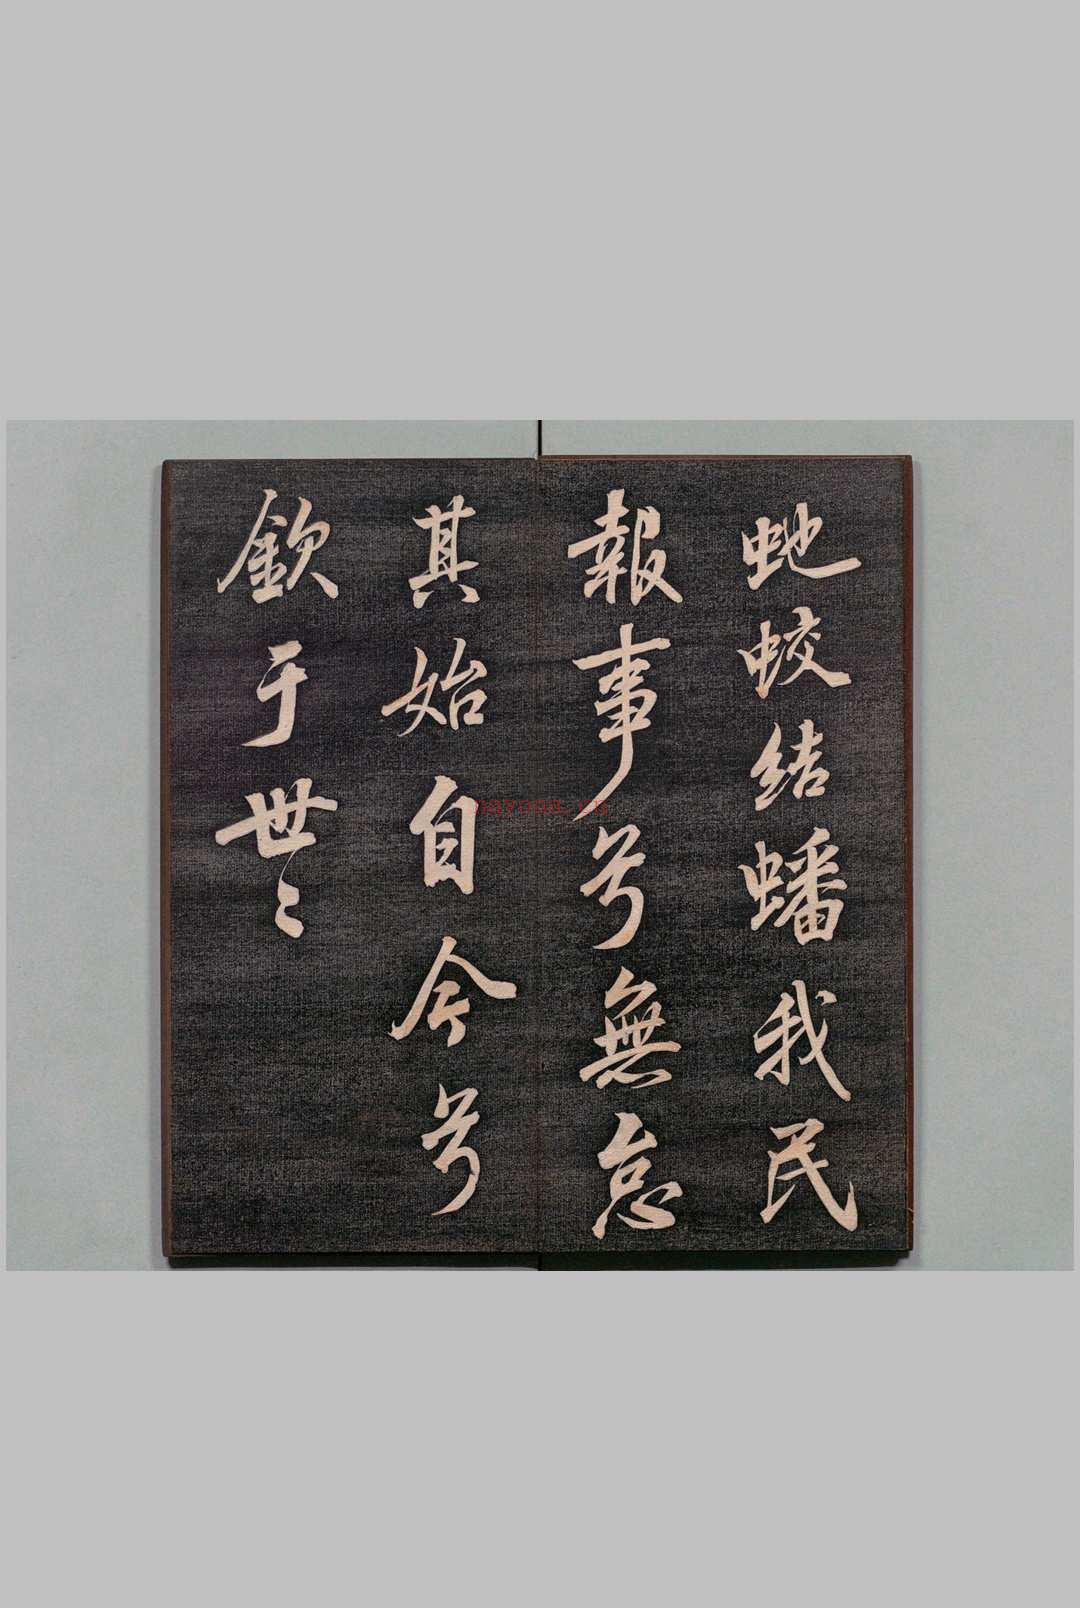 虵蛟结蟠我民
報事兮無怠
其始自今兮
欽于世〻